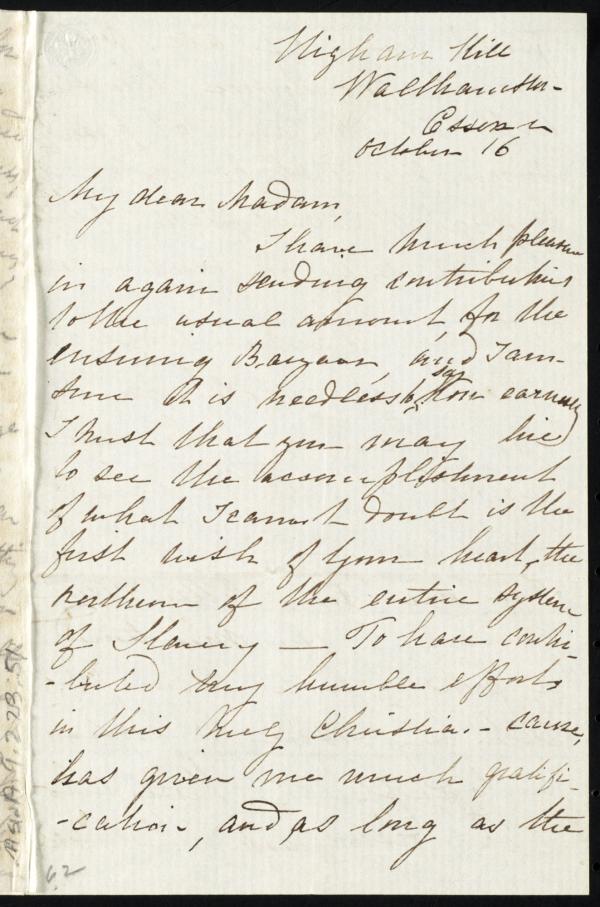 Higham Hill
Walthamstow
Essex
October 16
My dear Madam,
I have much pleasure
in again sending contributions
to the usual amount, for the
ensuing Bazaar, and I am
sure it is needless to say how earnestly
I trust that you may live
to see the accomplishment
of what I cannot doubt is the
first wish of your heart, the
overthrow of the entire system
of Slavery — To have contri-
-buted my humble efforts
in this truly Christian cause,
has given me much gratifi-
-cation, and as long as the
62